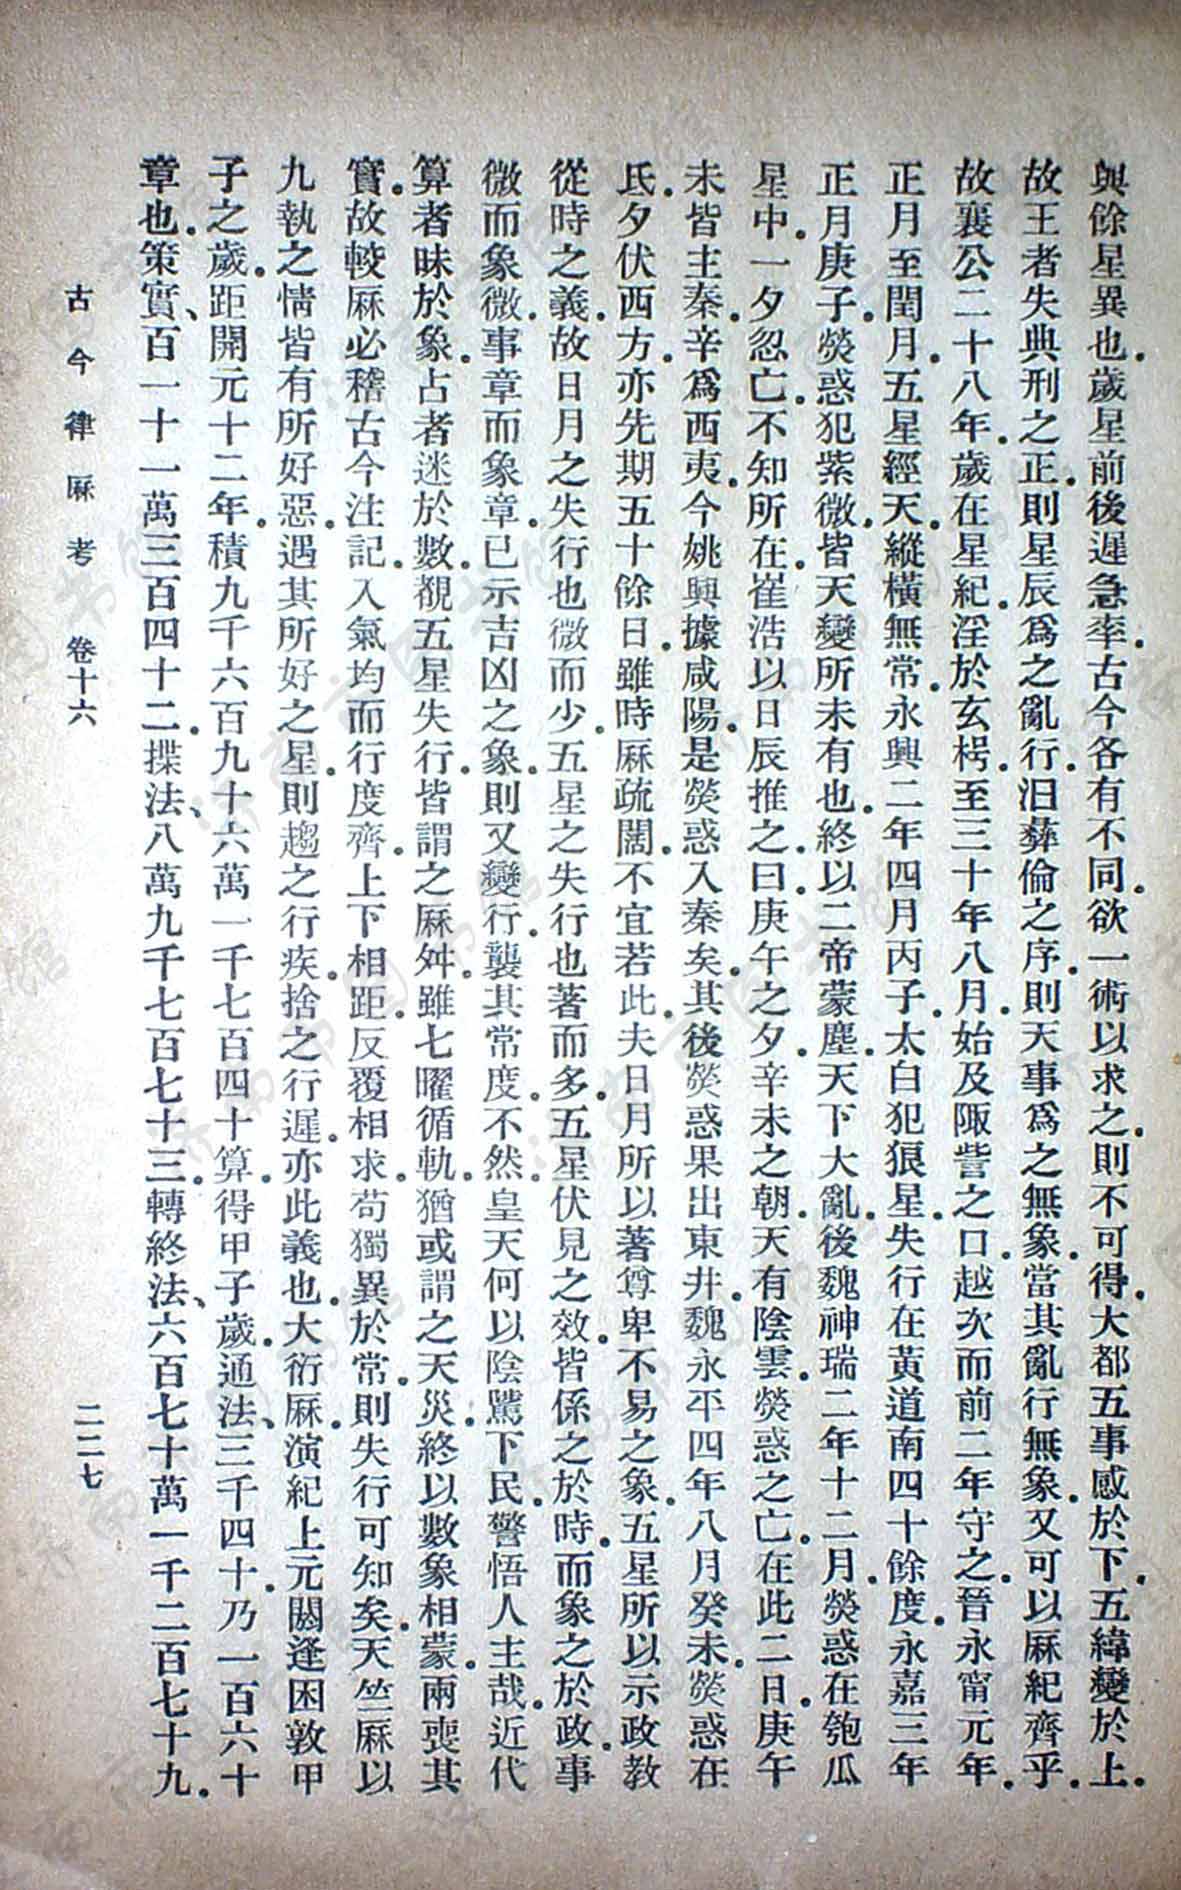 與餘星異也。歲星前後遲急率。古今各有不同。欲一術以求之。則不可得。大都五事感於下。五緯變於上。
故王者失典刑之正。則星辰爲之亂行。汩彝倫之序。則天事爲之無象。當其亂行無象。又可以厤紀齊乎。
故襄公二十八年。歲在星紀。淫於玄枵。至三十年八月。始及陬訾之口。越次而前二年守之。晉永甯元年。
正月至閏月。五星經天。縱橫無常。永興二年四月丙子。太白犯狼星。失行在黃道南四十餘度。永嘉三年
正月庚子。熒惑犯紫微。皆天變所未有也。終以二帝蒙塵。天下大亂。後魏神瑞二年十二月。熒惑在匏瓜
星中。一夕忽亡。不知所在。崔浩以日辰推之。曰。庚午之夕。辛未之朝。天有陰雲。熒惑之亡。在此二日。庚午
未皆主秦。辛爲西夷。今姚興據咸陽。是熒惑入秦矣。其後熒惑果出東井。魏永平四年八月癸未。熒惑在
氐。夕伏西方。亦先期五十餘日。雖時厤疏闊。不宜若此。夫日月所以著尊卑不易之象。五星所以示政教
從時之義。故日月之失行也微而少。五星之失行也著而多。五星伏見之效。皆係之於時。而象之於政。事
微而象微。事章而象章。已示吉凶之象。則又變行。襲其常度。不然。皇天何以陰騭下民。警悟人主哉。近代
算者昧於象。占者迷於數。覩五星失行。皆謂之厤舛。雖七曜循軌。猶或謂之天災。終以數象相蒙。兩喪其
實。故較厤必稽古今注記。入氣均而行度齊。上下相距。反覆相求。苟獨異於常。則失行可知矣。天竺厤以
九執之情皆有所好惡。遇其所好之星。則趨之行疾。捨之行遲。亦此義也。大衍厤。演紀上元閼逢困敦甲
子之歲。距開元十二年。積九千六百九十六萬一千七百四十算。得甲子歲。通法、三千四十。乃一百六十
章也。策實、百一十一萬三百四十二。揲法、八萬九千七百七十三。轉終法、六百七十萬一千二百七十九。
古今律厤考 卷十六 二二七